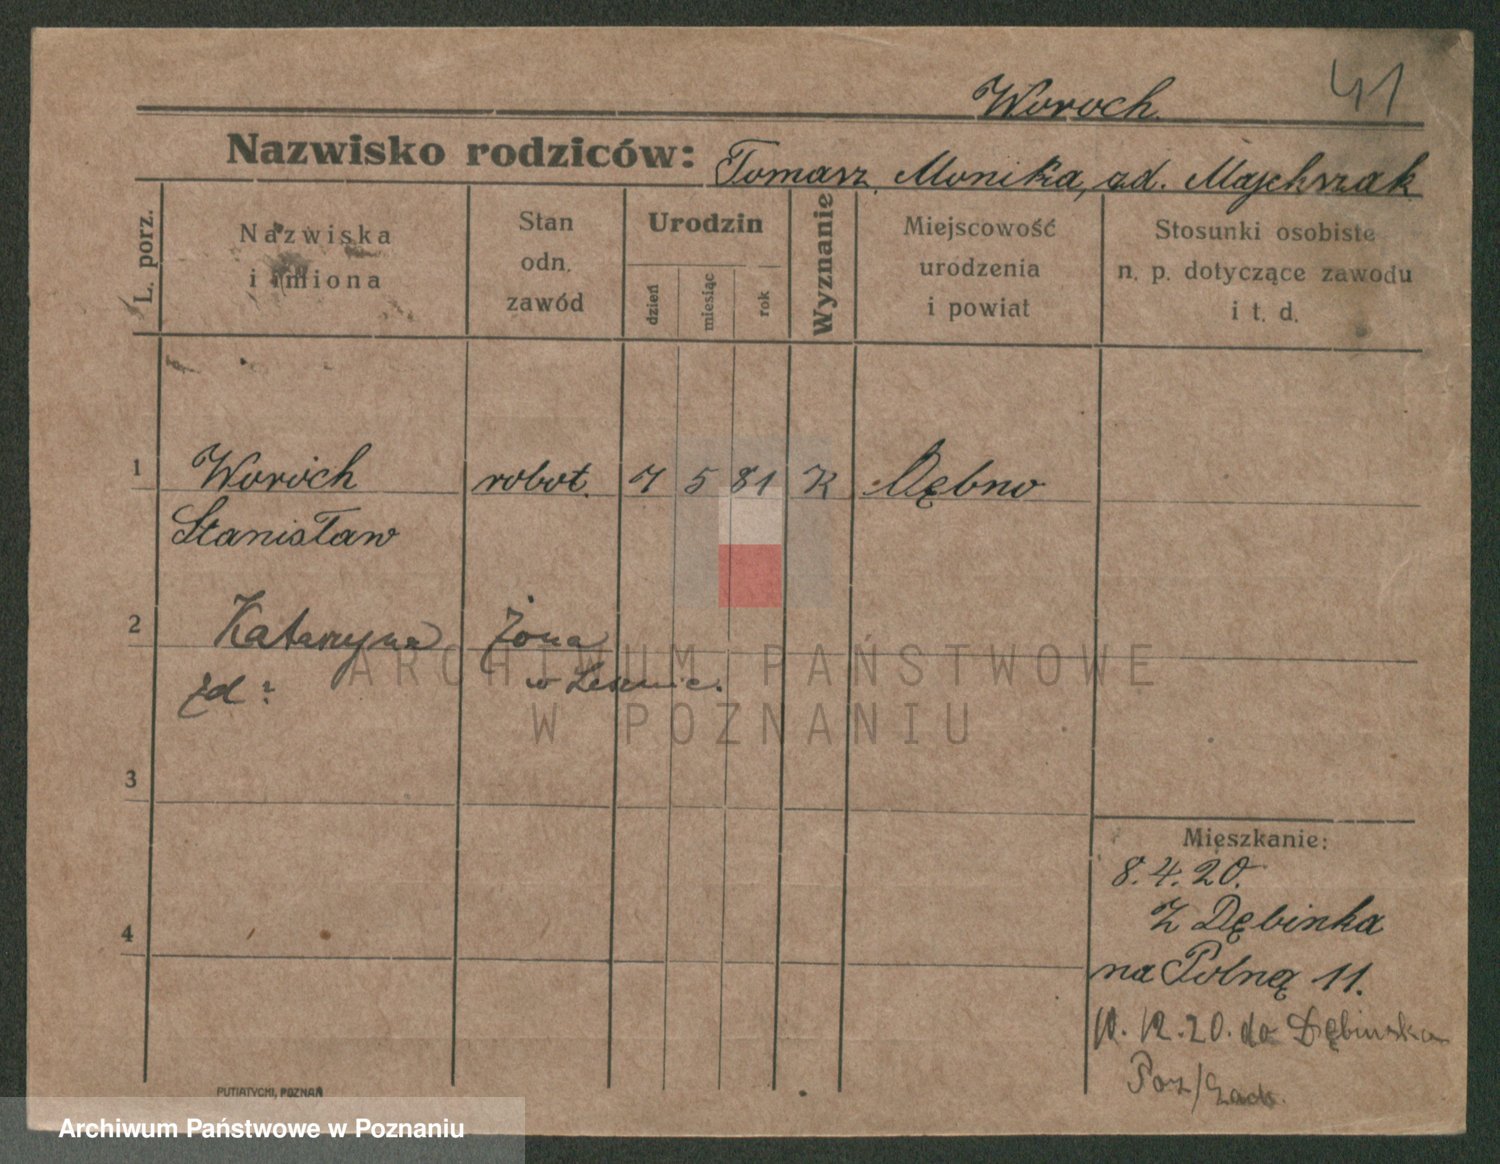 Woroch
41
Nazwisko rodziców: Tomasz, Monika, zd. Majchrzak
L. porz.
Nazwiska
i imiona
Stan
odn.
zawód
Urodzin
dzień
miesiąc
rok
Wyznanie
Miejscowość
urodzenia
i powiat
Stosunki osobiste
n. p. dotyczące zawodu
i t. d.
1 Woroch robot. 7 5 81 K Dębno
Stanisław
2 Katarzyna żona
zd ?
w
ARCHIWUM PAŃSTWOWE
W POZNANIU
3
4
Mieszkanie:
8.4.20.
Z Dębinka
na Polną 11.
10.12.20. do Dębinka
Poz/
PUTIATYCKI, POZNAŃ
Archiwum Państwowe w Poznaniu